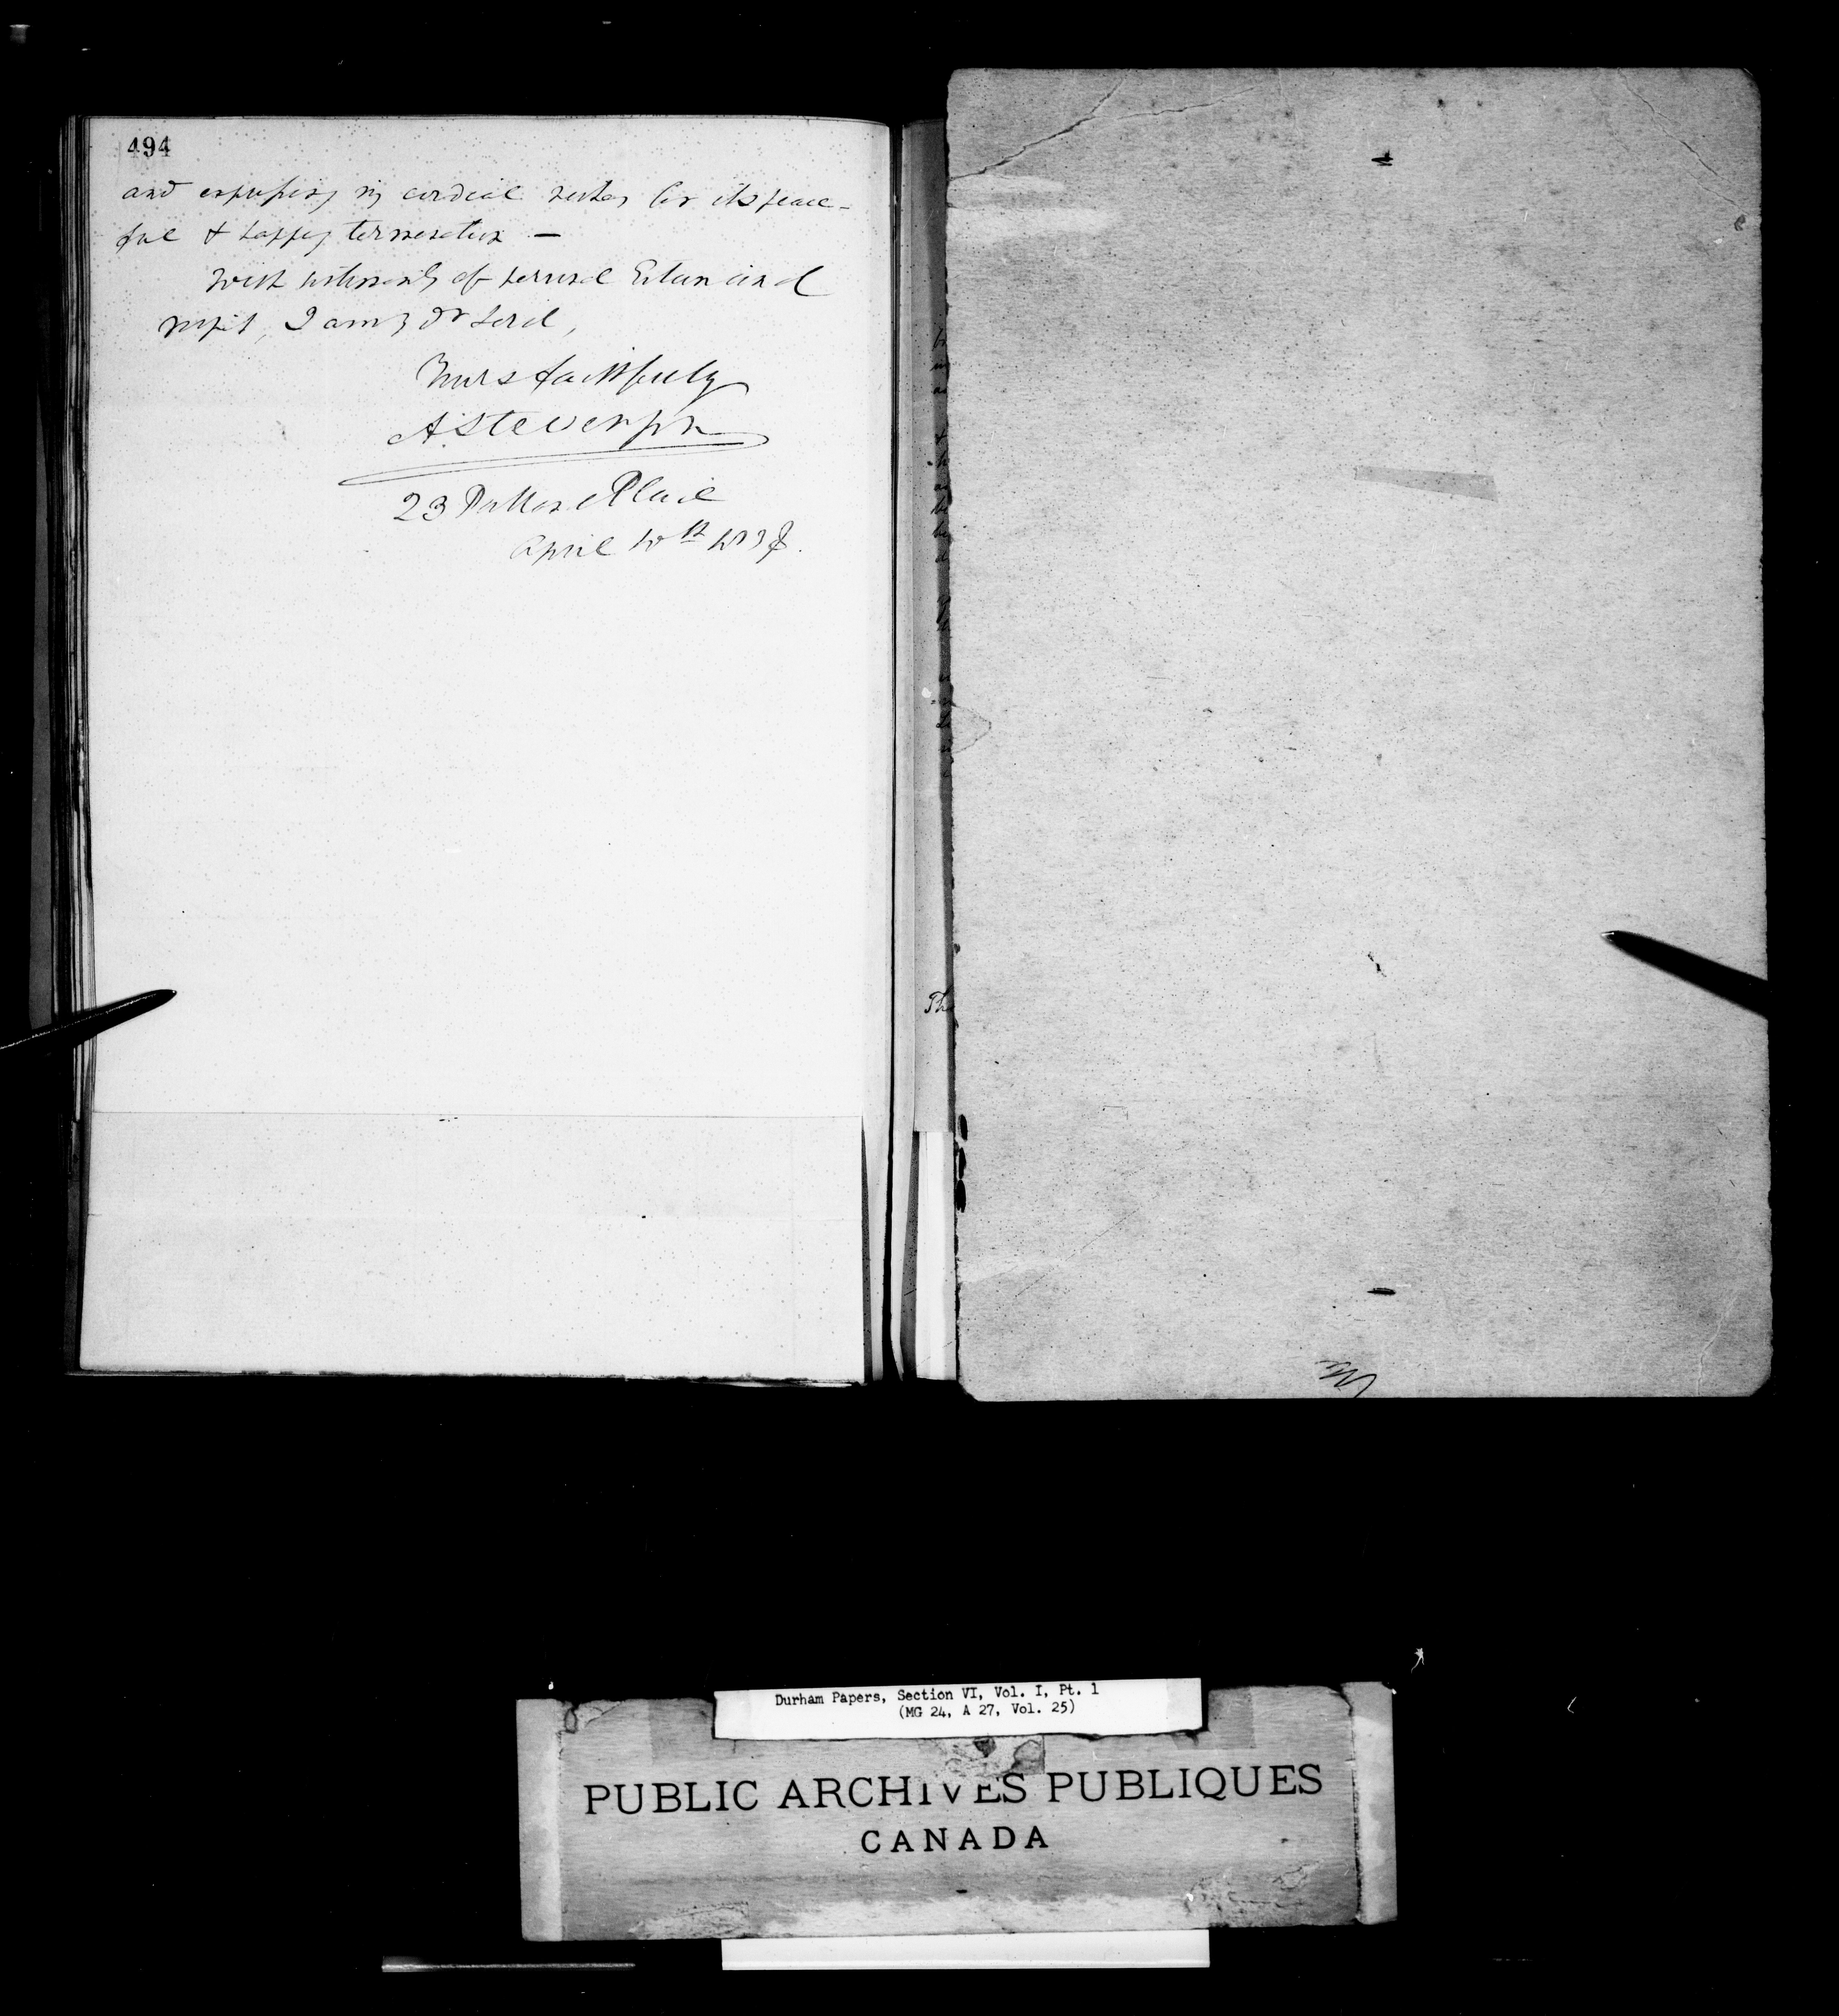 494
and expressing my cordial wishes for its peace-
ful & happy termination —
With sentiments of personal Esteem and
respect, I am my Dr Lord,
Yours faithfully
A. Stevenson
23 Portland Place
April 10th 1838.
Tho
Durham Papers, Section VI, Vol. I, Pt. 1
(MG 24, A 27, Vol. 25)
PUBLIC ARCHIVES PUBLIQUES
CANADA